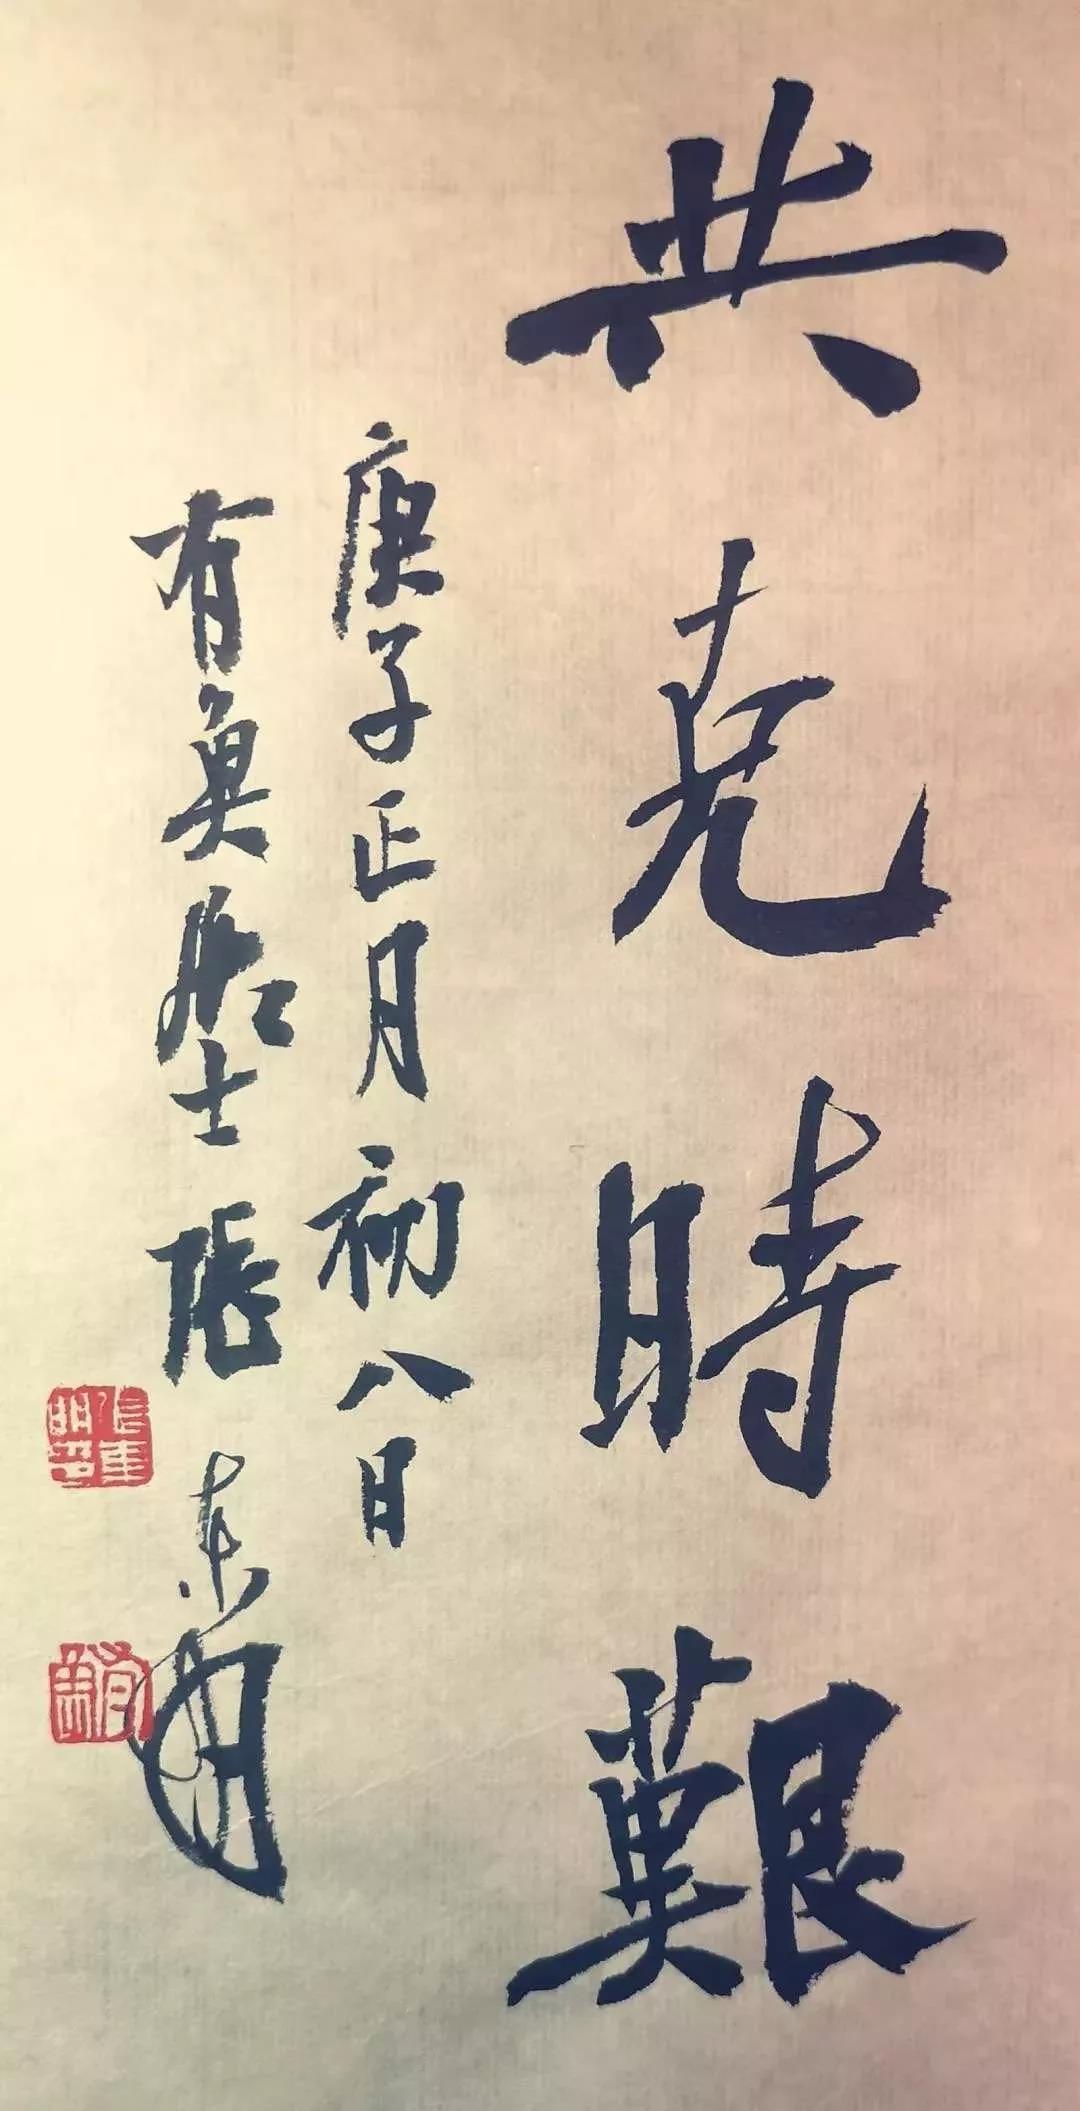 共克時艱
庚子正月初八日
有魚居士張東明